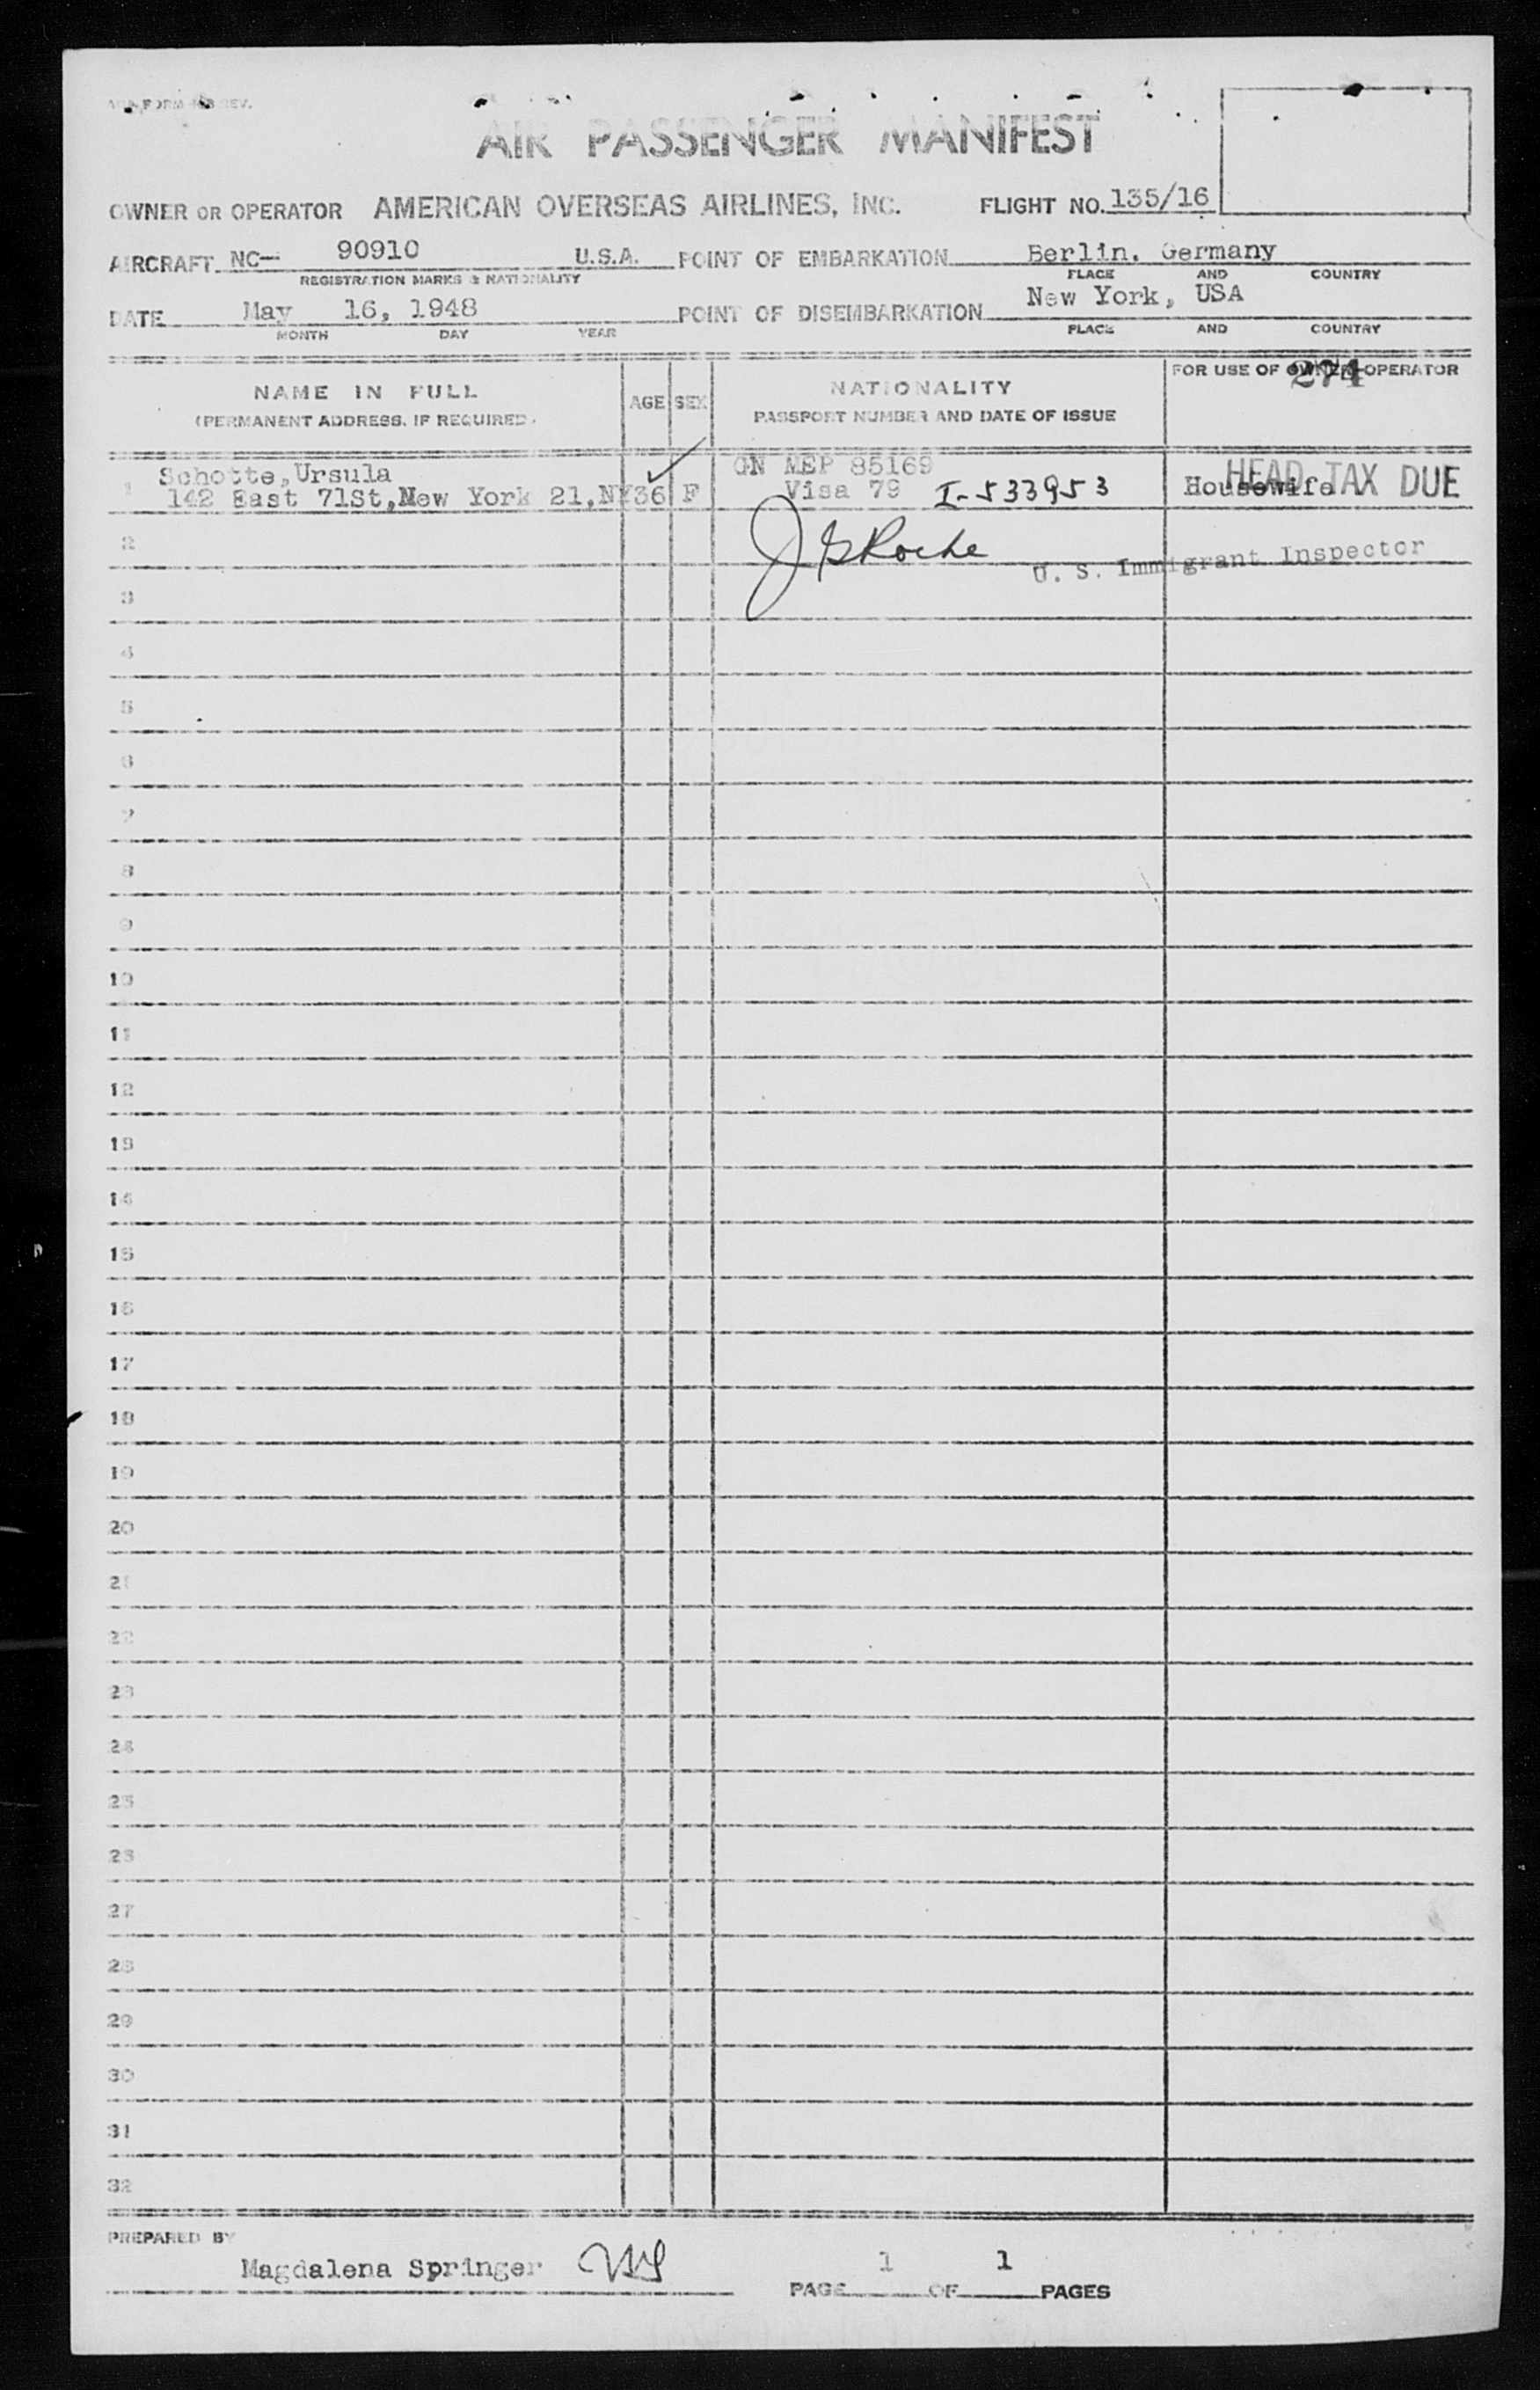 AIR PASSENGER MANIFEST
OWNER OR OPERATOR AMERICAN OVERSEAS AIRLINES, INC. FLIGHT NO. 135/16
AIRCRAFT NC- 90910 U.S.A. POINT OF EMBARKATION Berlin, Germany
REGISTRATION MARKS & NATIONALITY PLACE AND COUNTRY
DATE May 16, 1948 POINT OF DISEMBARKATION New York, USA
MONTH DAY YEAR PLACE AND COUNTRY
NAME IN FULL AGE SEX NATIONALITY FOR USE OF OWNER OPERATOR
274
(PERMANENT ADDRESS, IF REQUIRED) PASSPORT NUMBER AND DATE OF ISSUE
1 Schotte, Ursula GN MEP 85169 HEAD TAX DUE
142 East 71St, New York 21, NY 36 F Visa 79 I-533953 Housewife
2 J G Roche U. S. Immigrant Inspector
3
4
5
6
7
8
9
10
11
12
13
14
15
16
17
18
19
20
21
22
23
24
25
26
27
28
29
30
31
32
PREPARED BY
Magdalena Springer
PAGE 1 OF 1 PAGES